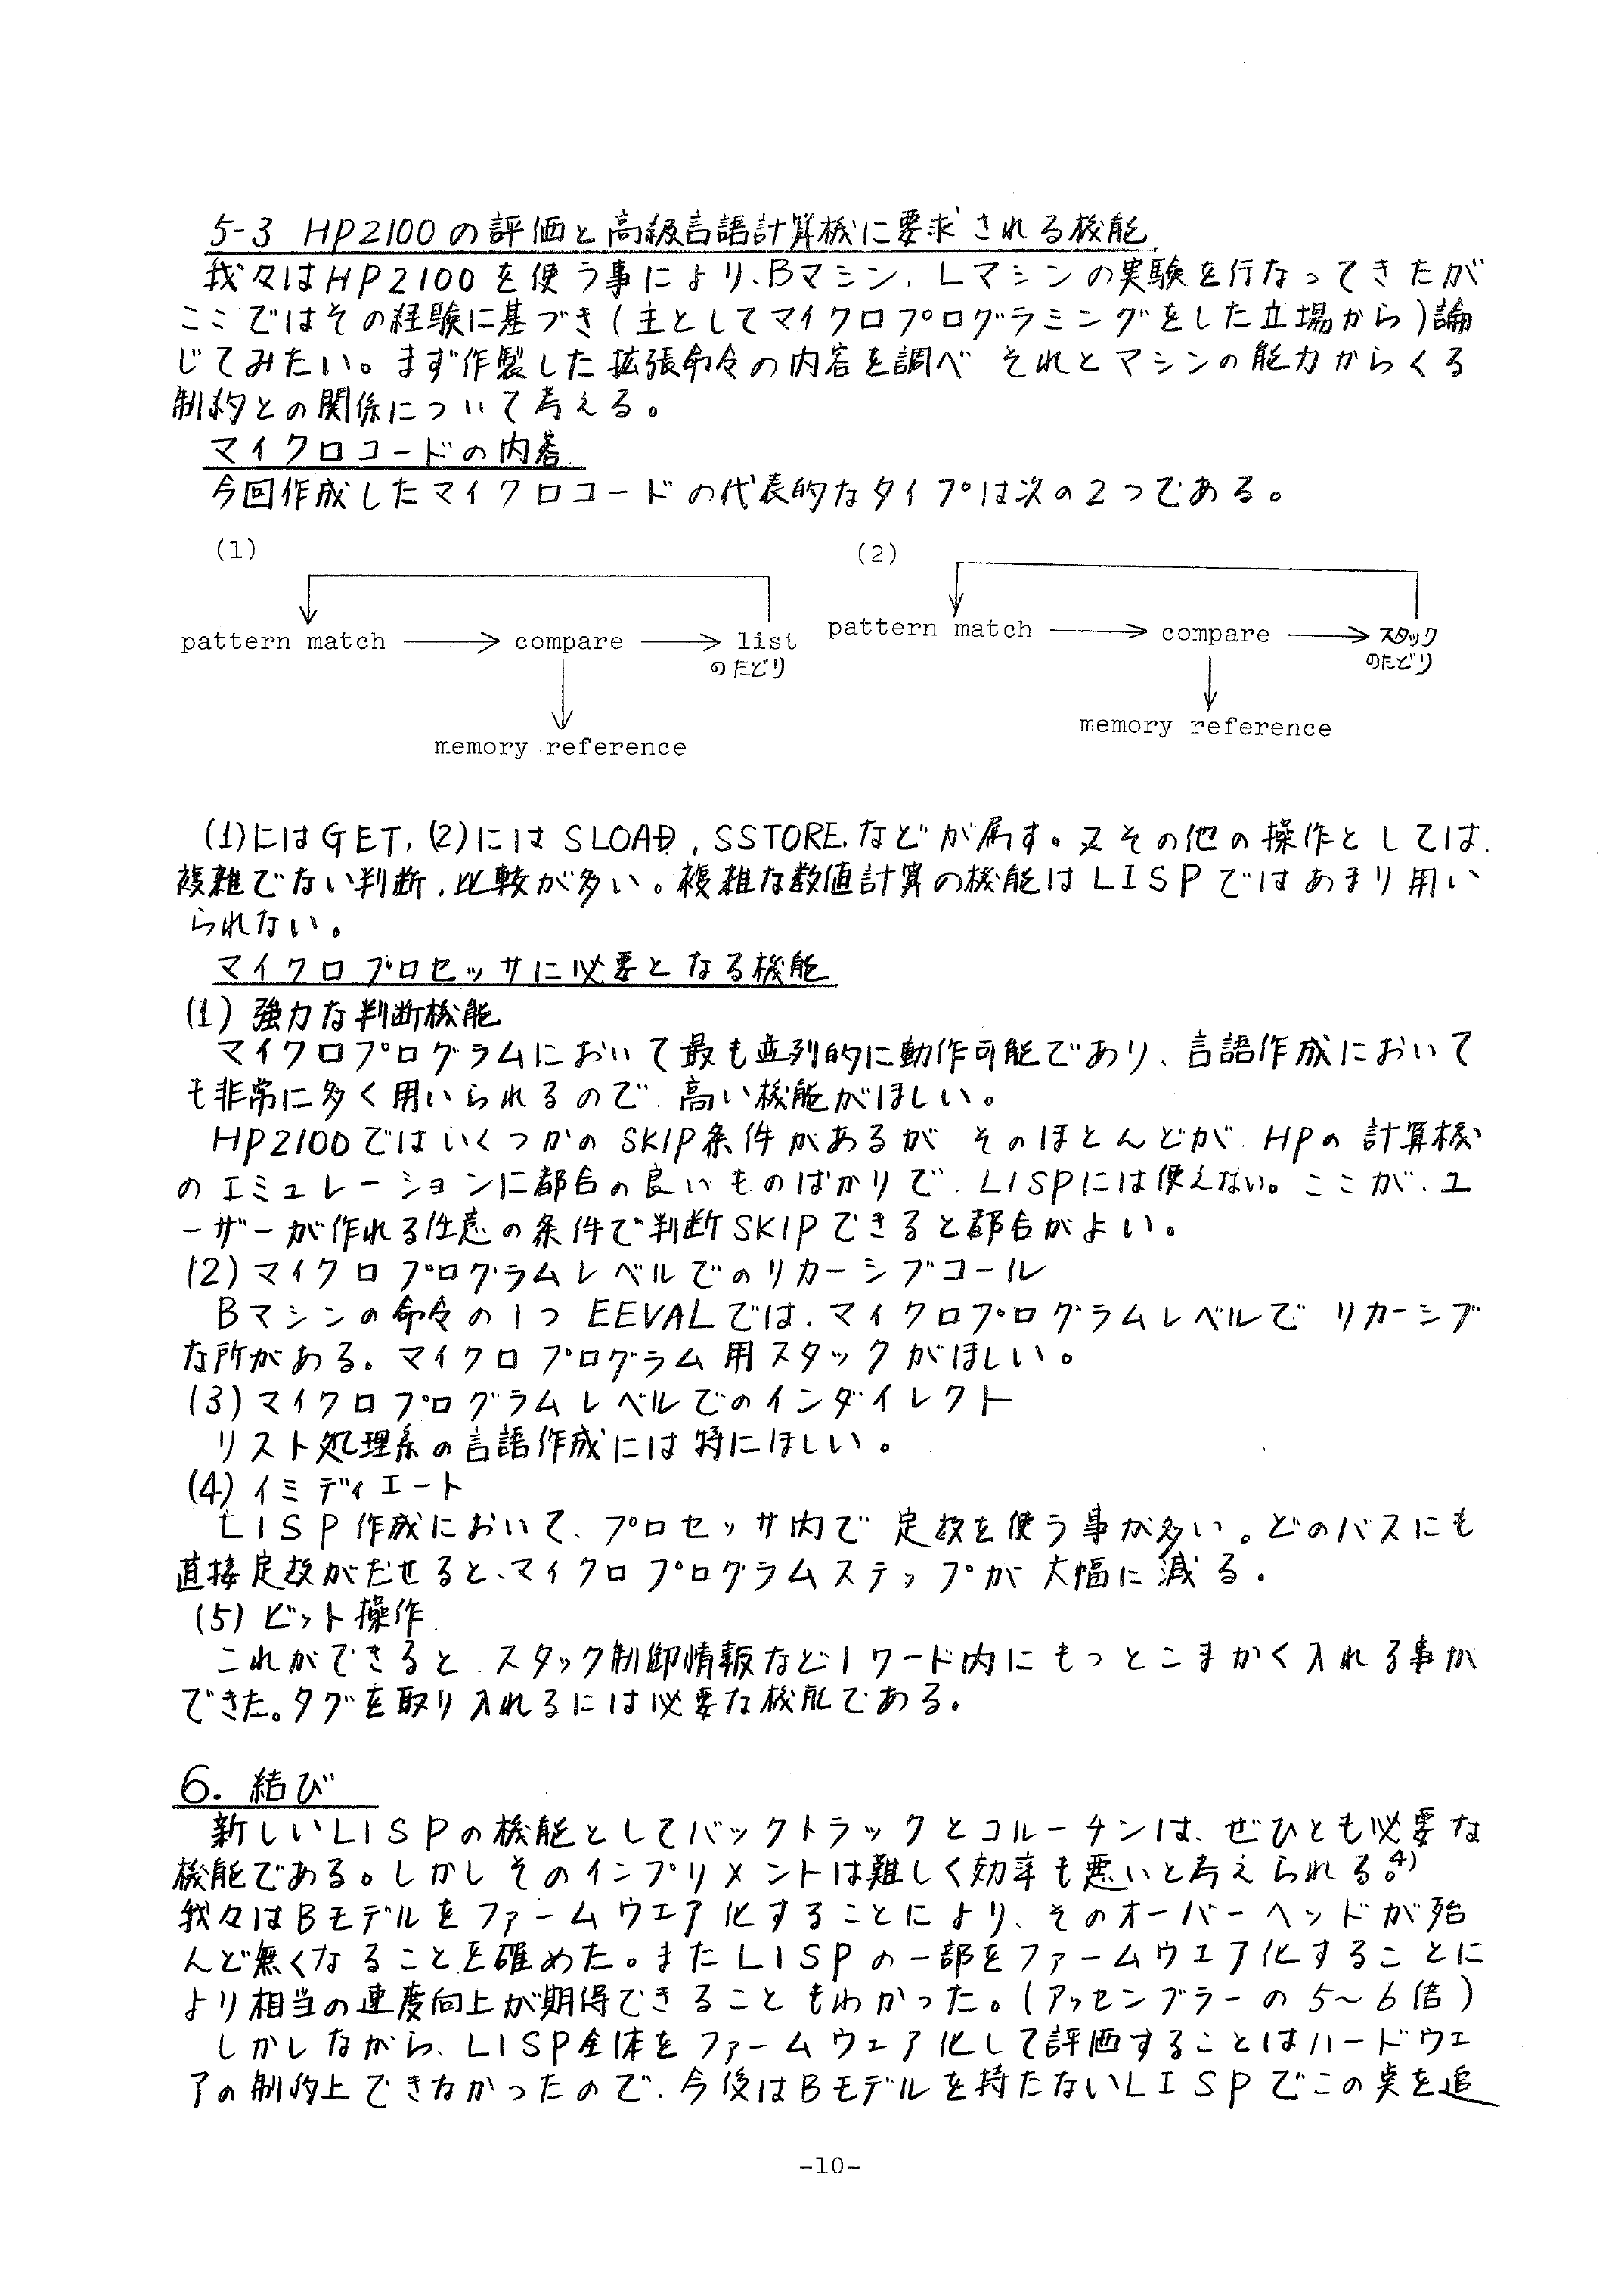 5-3 HP2100の評価と高級言語計算機に要求される機能
我々はHP2100を使う事により、Bマシン、Lマシンの実験を行なってきたが
ここではその経験に基づき(主としてマイクロプログラミングをした立場から)論
じてみたい。まず作製した拡張命令の内容を調べ それとマシンの能力からくる
制約との関係について考える。
マイクロコードの内容
今回作成したマイクロコードの代表的なタイプは次の2つである。
(1)
pattern match → compare → list
のたどり
memory reference
(2)
pattern match → compare → スタック
のたどり
memory reference
(1)にはGET,(2)にはSLOAD,SSTORE,などが属す。又その他の操作としては、
複雑でない判断、比較が多い。複雑な数値計算の機能はLISPではあまり用い
られない。
マイクロプロセッサに必要となる機能
(1)強力な判断機能
マイクロプログラムにおいて最も並列的に動作可能であり、言語作成において
も非常に多く用いられるので、高い機能がほしい。
HP2100ではいくつかのSKIP条件があるが そのほとんどが、HPの計算機
のエミュレーションに都合の良いものばかりで、LISPには使えない。ここが、ユ
ーザーが作れる任意の条件で判断SKIPできると都合がよい。
(2)マイクロプログラムレベルでのリカーシブコール
Bマシンの命令の1つ EEVALでは、マイクロプログラムレベルで リカーシブ
な所がある。マイクロプログラム用スタックがほしい。
(3)マイクロプログラムレベルでのインダイレクト
リスト処理系の言語作成には特にほしい。
(4)イミディエート
LISP作成において、プロセッサ内で定数を使う事が多い。どのバスにも
直接定数がだせると、マイクロプログラムステップが大幅に減る。
(5)ビット操作
これができると、スタック制御情報など1ワード内にもっとこまかく入れる事が
できた。タグを取り入れるには必要な機能である。
6. 結び
新しいLISPの機能としてバックトラックとコルーチンは、ぜひとも必要な
機能である。しかしそのインプリメントは難しく効率も悪いと考えられる。4)
我々はBモデルをファームウエア化することにより、そのオーバーヘッドが殆
んど無くなることを確めた。またLISPの一部をファームウエア化することに
より相当の速度向上が期待できることもわかった。(アッセンブラーの5〜6倍)
しかしながら、LISP全体をファームウェア化して評価することはハードウェ
アの制約上できなかったので、今後はBモデルを持たないLISPでこの実を追
-10-